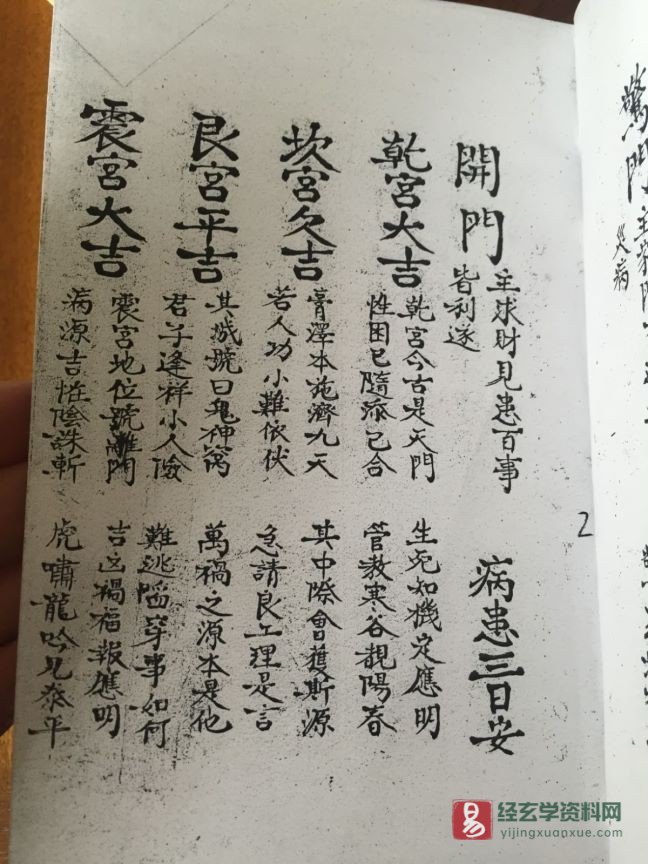 開門 主求財見患百事皆利遂 病患三日安
乾宮大吉 乾宮今古是天門 生死知機定應明
性困已隨添已合 管教寒谷親陽春
坎宮欠吉 膏澤本施濟九天 其中際會獲斯源
若人功小難依伏 急請良工理是言
艮宮平吉 其城號曰鬼神窩 萬禍之源本是他
君子逢祥小人儉 難逃過穿事如何
震宮大吉 震宮地位號離門 吉凶禍福報應明
病源吉性陰誅斬 虎嘯龍吟見泰平
驚門
災病
2
经玄学资料网
yijingxuanxue.com